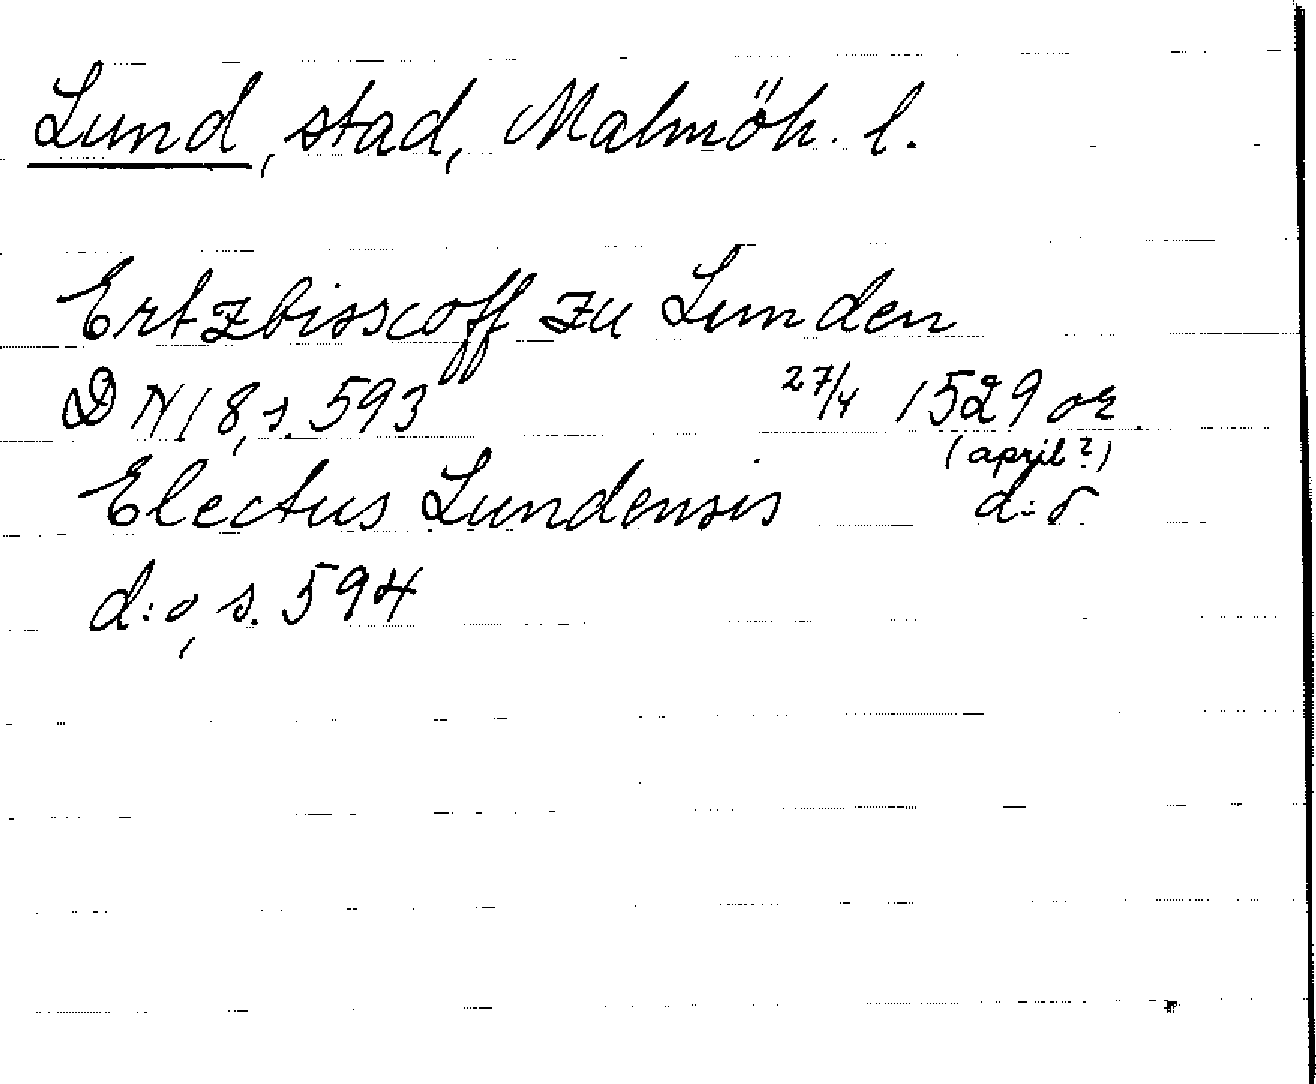 Lund, stad, Malmöh. l.
Ertzbisscoff zu Lunden
DN 18, s. 593 27/4 1529 or.
(april?)
Electus Lundensis d:o
d:o, s. 594